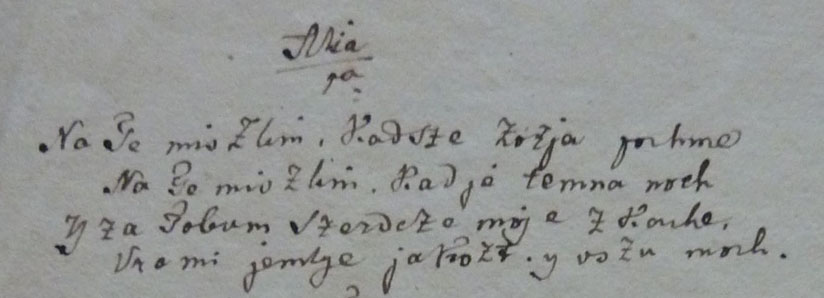 Aria
1a
Na Te miszlim, Kadsze zorja pochme
Na Te miszlim, Kad je temna noch
Y za Tobum szerdcze moje zkache,
Vze mi jemlye jakozt. y vszu moch.